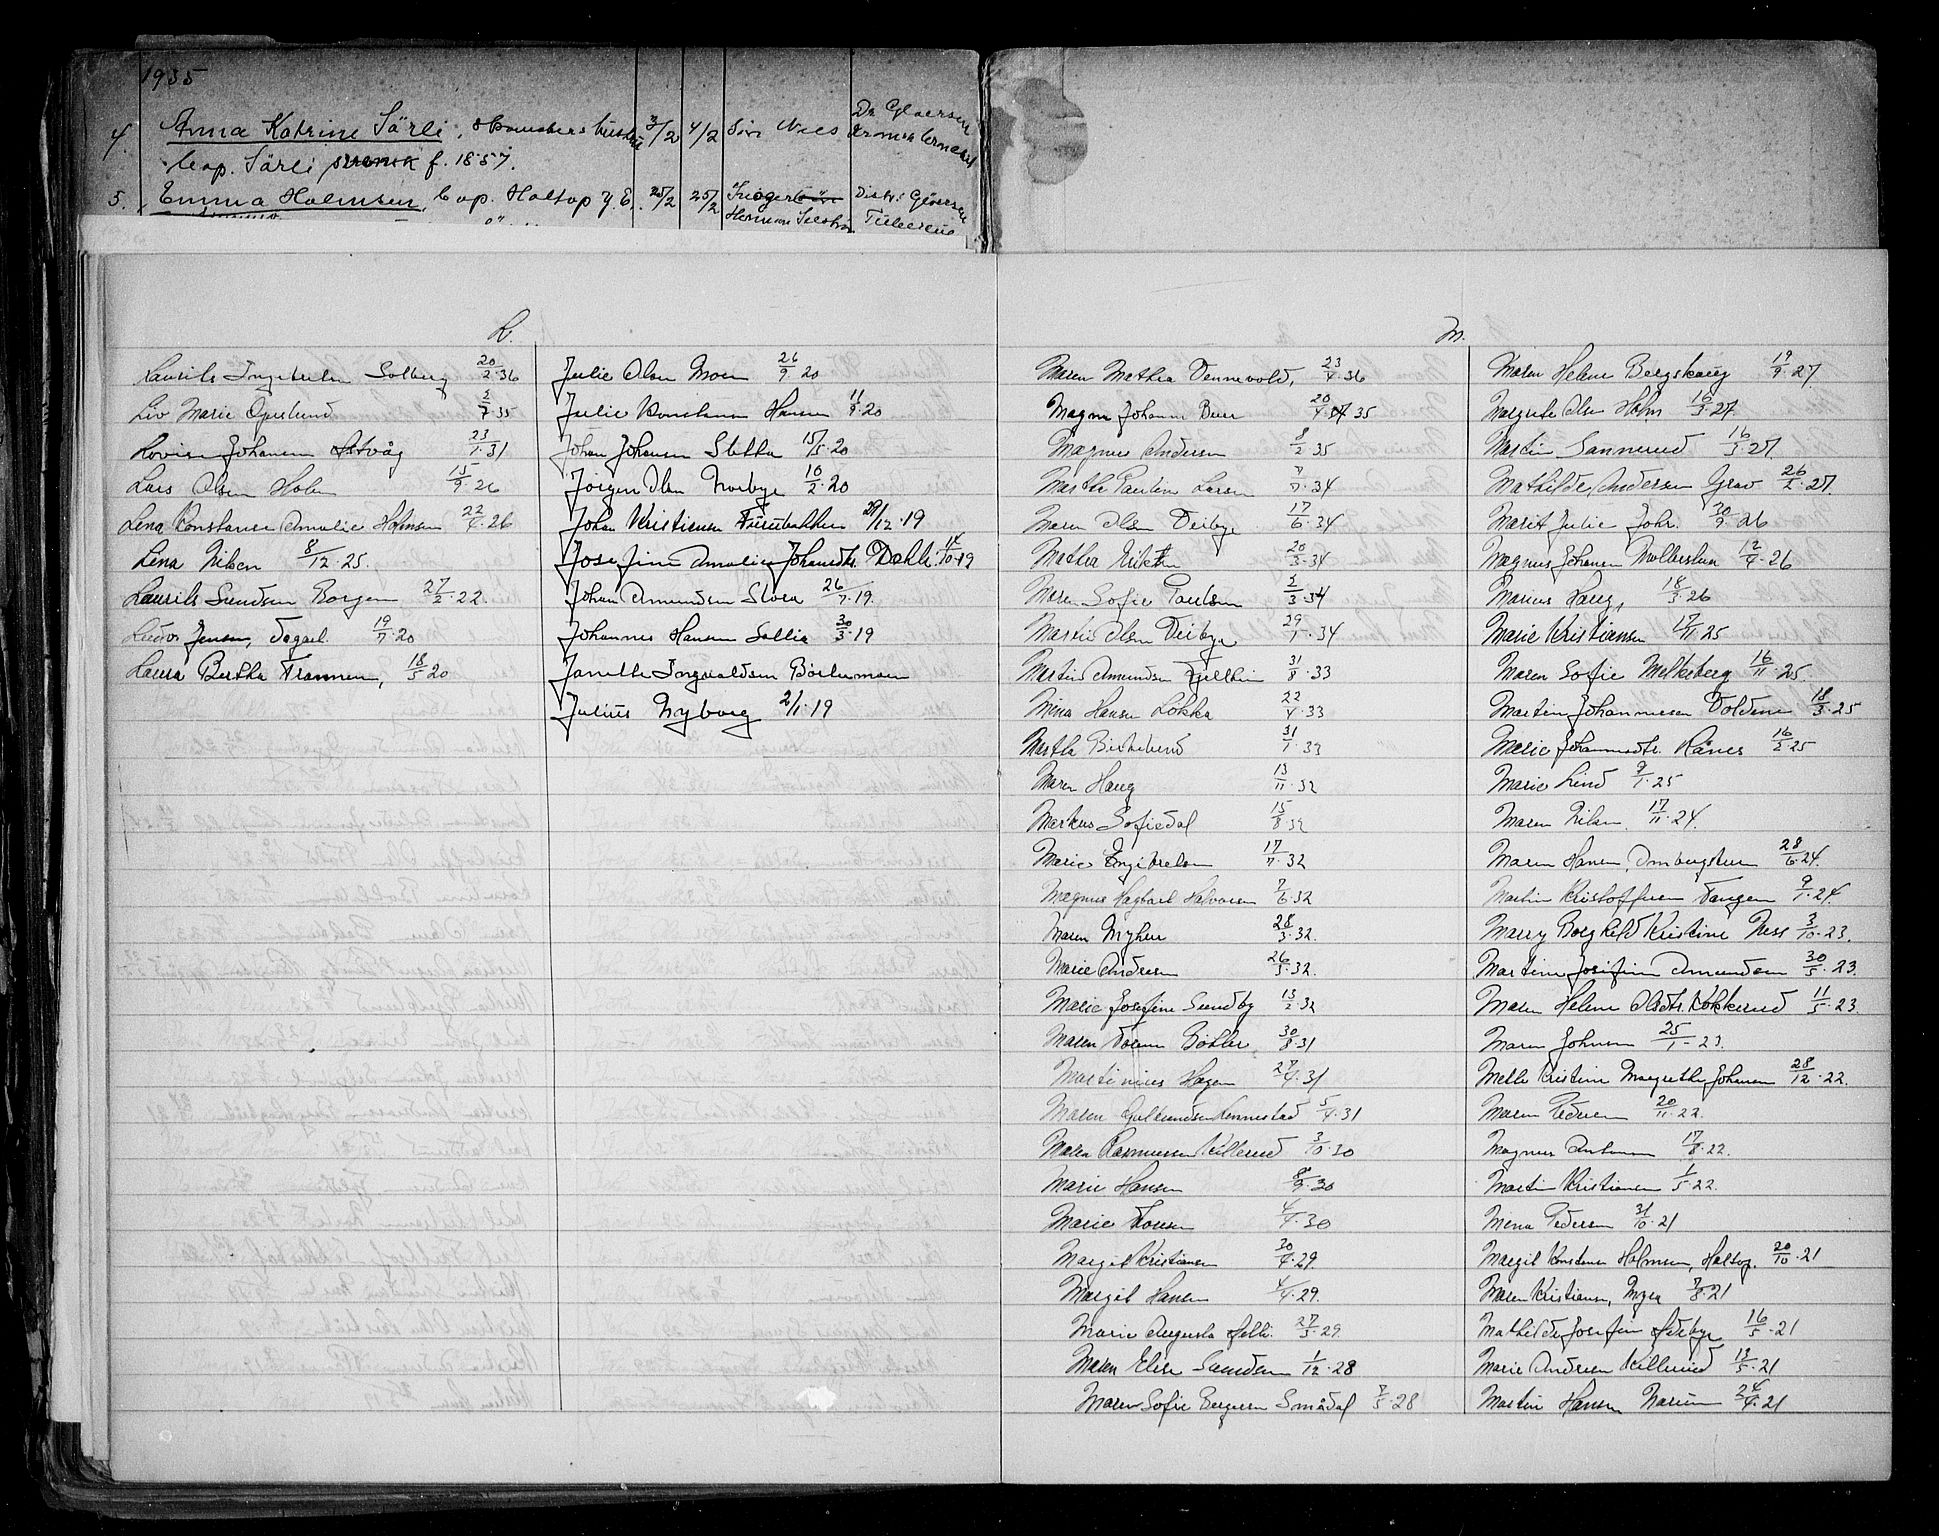 1935
4. Anna Katrine Särli, 3/2 4/2 Dr Gløersen
Cap. Särli f. 1857.
5. Emma Holmsen, Cap. Holtop 25/2 25/2 Distr. Gløersen
L.
Laurits Solberg 20/2.36
Liv Marie 2/7.35
Lovise Johansen 23/1.31
Lars Olsen Holm 15/9.26
Lena Konstanse Amalie Holmsen 22/4.26
Lena Nilsen 8/12.25.
Laurits Sundsen Borgen 27/2.22.
Jensen, 19/7.20
Laura Bertha 18/5 20
Julie Olsen Moen 26/9 20
Julie Hansen 11/9.20
Johan Johansen Sletta 15/5.20
Jørgen Olsen Norbye 10/2.20
Johan Kristiansen Furubakken 29/12.19
Josefine Amalie Johansdtr. Dahl. 14/10.19
Johan Amundsen Slora 26/7.19.
Johannes Hansen Sollia 30/3.19
Janette Ingvaldsen
Julius Nyborg 2/1.19
M.
Maren Mathea Vennevold, 23/4.36
Magna Johanne 20/4.35
Magnus Andersen 8/2.35
Marthe Pauline Larsen 7/7.34
Maren Olsen Deibye 17/6.34
Mathea 20/3.34
Maren Sofie Paulsen 2/3.34
Martin Olsen Deibye 29/1.34
Martin Amundsen 31/8.33
Mina Hansen Løkka 22/4.33
Marthe 31/1.33
Maren Haug 13/11.32
Markus Sofiedal 15/8.32
Marie Engibretsen 17/7.32
Magnus Hagbart Halvorsen 7/6.32
Maren Myhre 28/3.32.
Marie Andresen 26/3.32.
Marie Josefine Sundby 13/2.32
Maren 30/8.31
Martinius Hagen 27/4.31
Maren Gulbrandsen Lennestad 5/4.31
Maren Rasmussen Killerud 3/10.30
Marie Hansen 8/9.30
Marie 4/4.30
Margit Kristiansen 30/4.29
Margit Hansen 4/4.29.
Marie Augusta 27/3.29.
Maren Elise Sundsen 1/12.28
Maren Sofie Smådal 7/5.28
Maren Helene Bergskaug 19/9.27
Margrete Olsen Holm 16/3.27.
Martin Sannerud 16/3.27
Mathilde Andersen Grav 26/2.27.
Marit Julie Joh. 30/9.26
Magnus Johansen 12/4.26
Marius Haug, 18/3.26
Marie Kristiansen 17/11.25
Maren Sofie Melkeberg 16/11.25.
Martin Johannesen Volden 18/3.25
Marie Johannesdtr. 16/2.25
Marie Lind 9/1.25
Maren Nilsen 17/11.24.
Maren Hansen, 28/6.24.
Martin Kristoffersen Tangen 9/1.24.
Marry Borghild Kristine Ness 3/10.23.
Martine Josefine Amundsen 30/5.23.
Maren Helene Olsdtr. Kokkerud 11/5.23.
Maren Johnsen 25/1-23.
Mette Kristine Margrethe Johansen 28/12.22.
Maren Pedersen 20/11.22.
Magnus Antonsen 17/8.22.
Martin Kristiansen 1/5.22.
Mina Pedersen 31/10.21
Margit Konstanse Holmsen, Holtop. 20/10.21
Maren Kristiansen, Myra 7/8.21
Mathilde Josefine 16/5.21
Marie Andersen Killerud 13/5.21
Martin Hansen 24/4.21